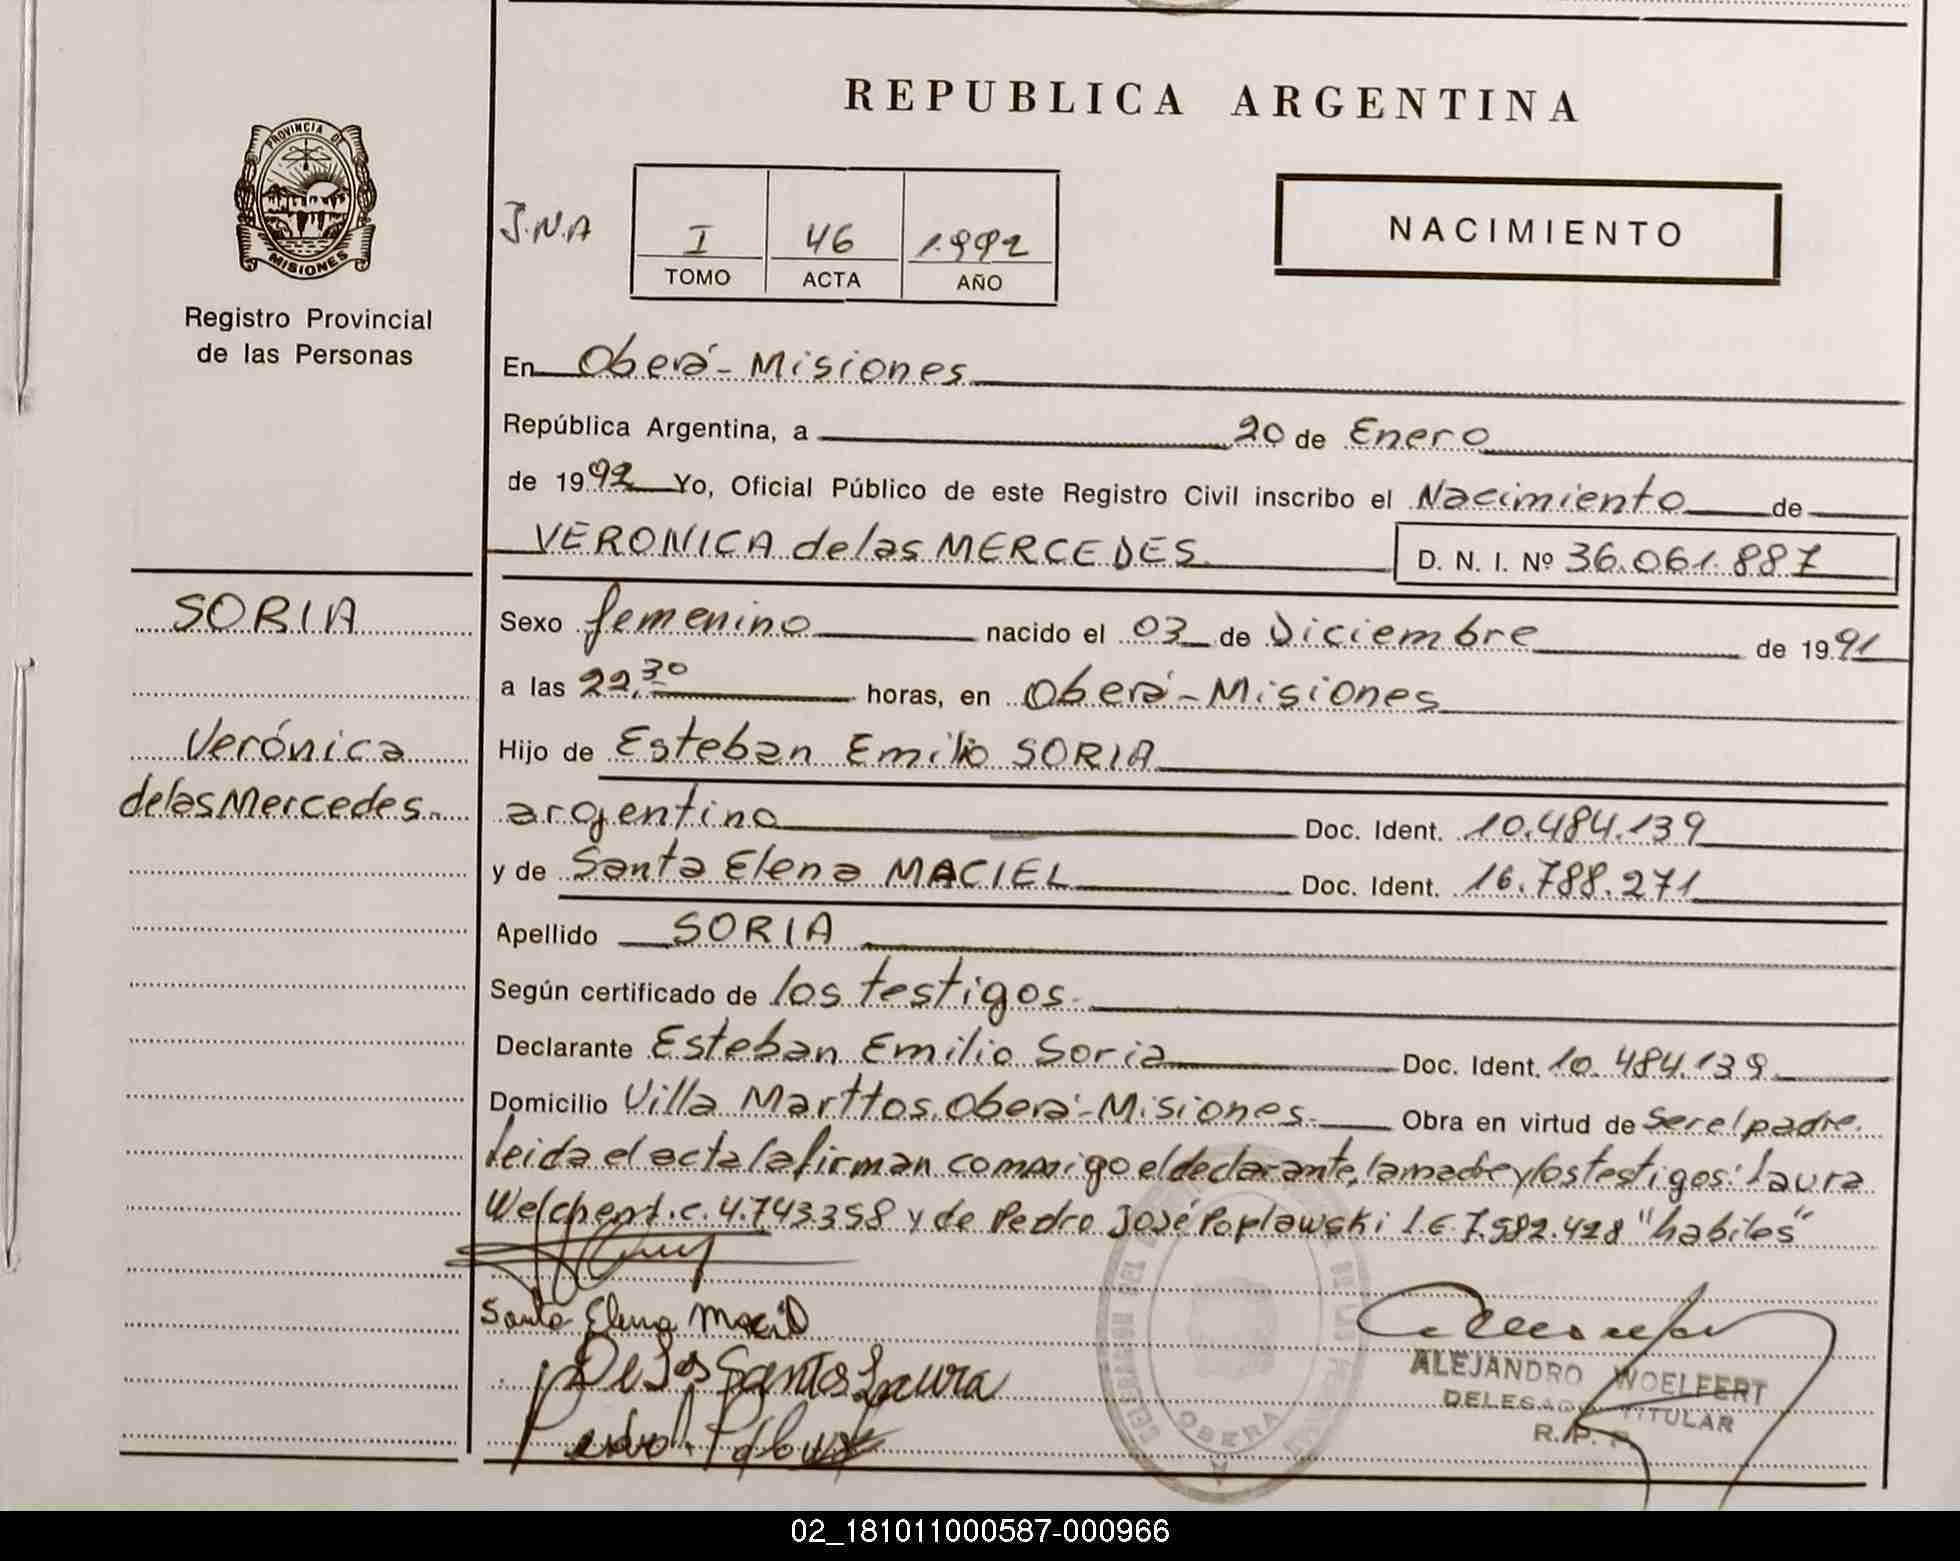 REPUBLICA ARGENTINA
PROVINCIA DE
MISIONES
Registro Provincial
de las Personas
J.N.A
I 46 1992
TOMO ACTA AÑO
NACIMIENTO
En Oberá - Misiones
República Argentina, a 20 de Enero
de 1992 Yo, Oficial Público de este Registro Civil inscribo el Nacimiento de
VERONICA de las MERCEDES D. N. I. Nº 36.061.887
SORIA
Verónica
de las Mercedes
Sexo femenino nacido el 03 de Diciembre de 1991
a las 22,30 horas, en Oberá - Misiones
Hijo de Esteban Emilio SORIA
argentino Doc. Ident. 10.484.139
y de Santa Elena MACIEL Doc. Ident. 16.788.271
Apellido SORIA
Según certificado de los testigos.
Declarante Esteban Emilio Soria Doc. Ident. 10.484.139
Domicilio Villa Marttos. Oberá - Misiones. Obra en virtud de ser el padre.
leida el acta la firman conmigo el declarante, la madre y los testigos: Laura
L.C. 4.743358 y de Pedro José Poplawski L.E 7.582.428 "habiles"
Santa Elena Maciel
De Los Santos Laura
Pedro J.
OBERA
ALEJANDRO WOELFERT
DELEGADO TITULAR
R. P. P.
02_181011000587-000966